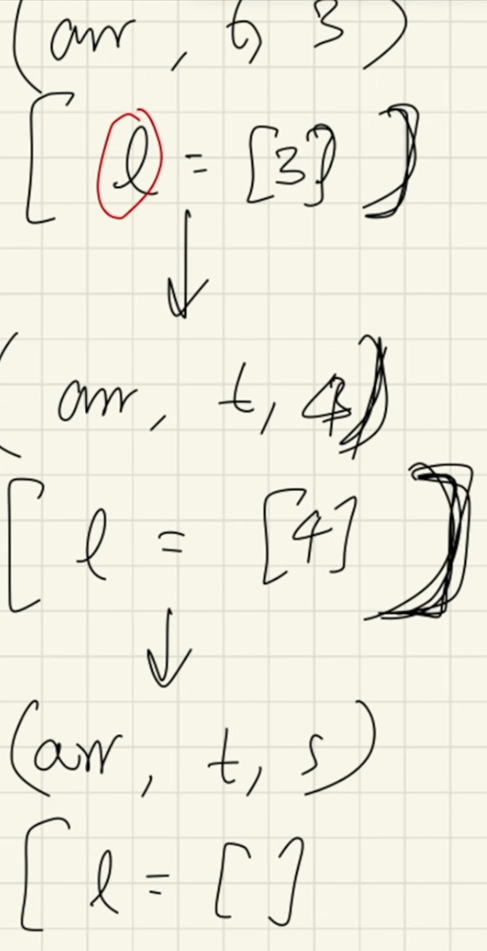 (arr, t, 3)
[ l = [3] ]
(arr, t, 4)
[ l = [4] ]
(arr, t, 5)
[ l = []